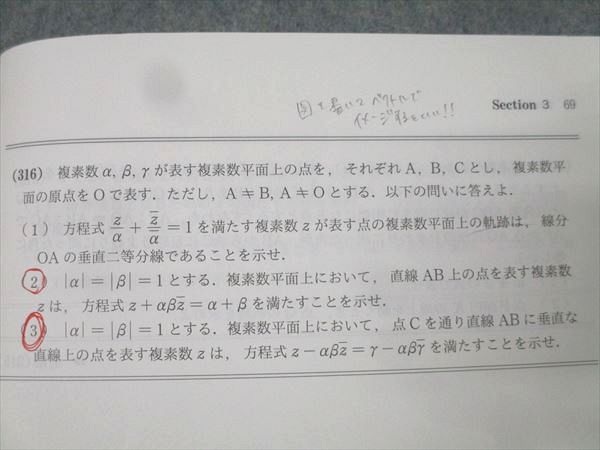 図を書いてベクトルで
イメージするといい!!
Section 3 69
(316) 複素数 α, β, γ が表す複素数平面上の点を, それぞれ A, B, C とし, 複素数平
面の原点を O で表す. ただし, A ≠ B, A ≠ O とする. 以下の問いに答えよ.
(1) 方程式 z/α + z̄/ᾱ = 1 を満たす複素数 z が表す点の複素数平面上の軌跡は, 線分
OA の垂直二等分線であることを示せ.
(2) |α| = |β| = 1 とする. 複素数平面上において, 直線 AB 上の点を表す複素数
z は, 方程式 z + αβz̄ = α + β を満たすことを示せ.
(3) |α| = |β| = 1 とする. 複素数平面上において, 点 C を通り直線 AB に垂直な
直線上の点を表す複素数 z は, 方程式 z − αβz̄ = γ − αβγ̄ を満たすことを示せ.